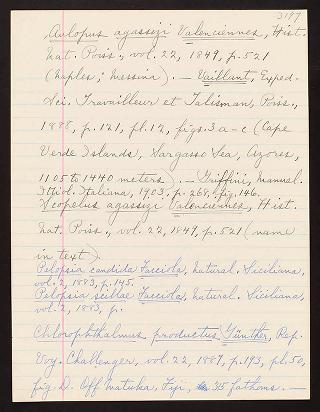 3187
Aulopus agassizi Valenciennes, Hist.
Nat. Poiss., vol. 22, 1849, p. 521
(Naples; Messina). — Vaillant, Exped.
Sci. Travailleur et Talisman, Poiss.,
1888, p. 121, pl. 12, figs. 3 a-c (Cape
Verde Islands, Sargasso Sea, Azores,
1105 to 1440 meters). — Griffini, Manual.
Ittiol. Italiana, 1903, p. 268, fig. 146.
Scopelus agassizi Valenciennes, Hist.
Nat. Poiss., vol. 22, 1849, p. 521 (name
in text).
Pelopsia candida Facciola, Natural. Siciliana,
vol. 2, 1883, p. 145.
Pelopsia scillae Facciola, Natural. Siciliana,
vol. 2, 1883, p.
Chlorophthalmus productus Günther, Rep.
Voy. Challenger, vol. 22, 1887, p. 193, pl. 50,
fig. D. Off Matuka, Fiji, 315 fathoms. —